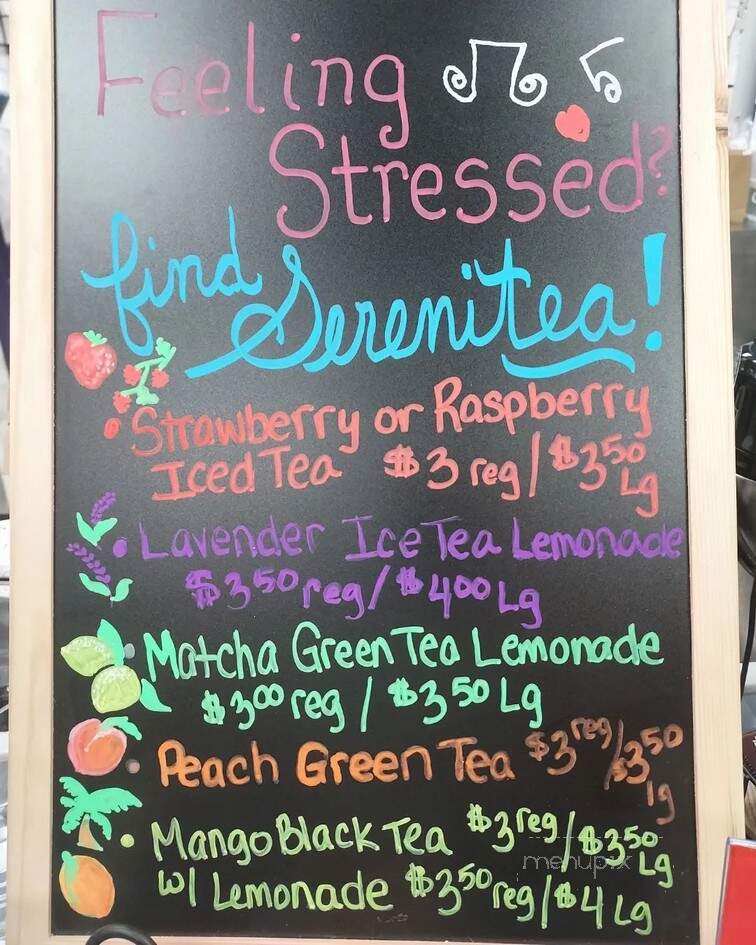 Feeling
Stressed?
find Serenitea!
Strawberry or Raspberry
Iced Tea $3 reg/$3.50 Lg
Lavender Ice Tea Lemonade
$3.50 reg/$4.00 Lg
Matcha Green Tea Lemonade
$3.00 reg / $3.50 Lg
Peach Green Tea $3 reg/$3.50 lg
Mango Black Tea $3 reg/$3.50 Lg
w/ Lemonade $3.50 reg/$4 Lg
menupix